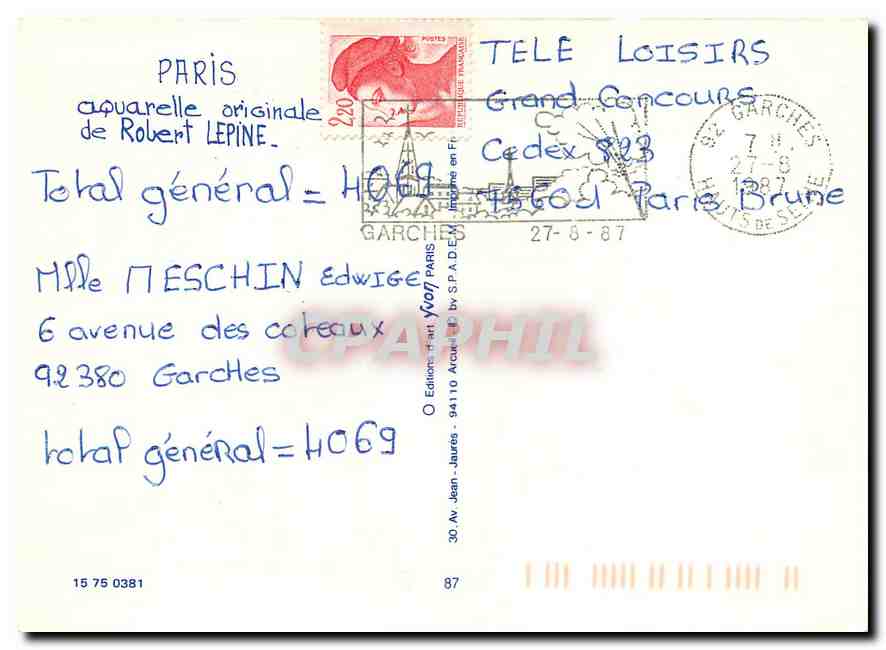 PARIS
aquarelle originale
de Robert LEPINE.
Total général = 4069
Mlle MESCHIN EDWIGE
6 avenue des coteaux
92380 GarcHes
total général = 4069
15 75 0381
POSTES
2,20
REPUBLIQUE FRANÇAISE
TELE LOISIRS
Grand Concours
Cedex 823
75601 Paris Brune
GARCHES
27-8-87
92 GARCHES
27-8
1987
HAUTS DE SEINE
Editions d'art yvon PARIS
30. Av. Jean - Jaurès - 94110 Arcueil by S.P.A.D.E.M. - Imprimé en
87
CPAPHIL